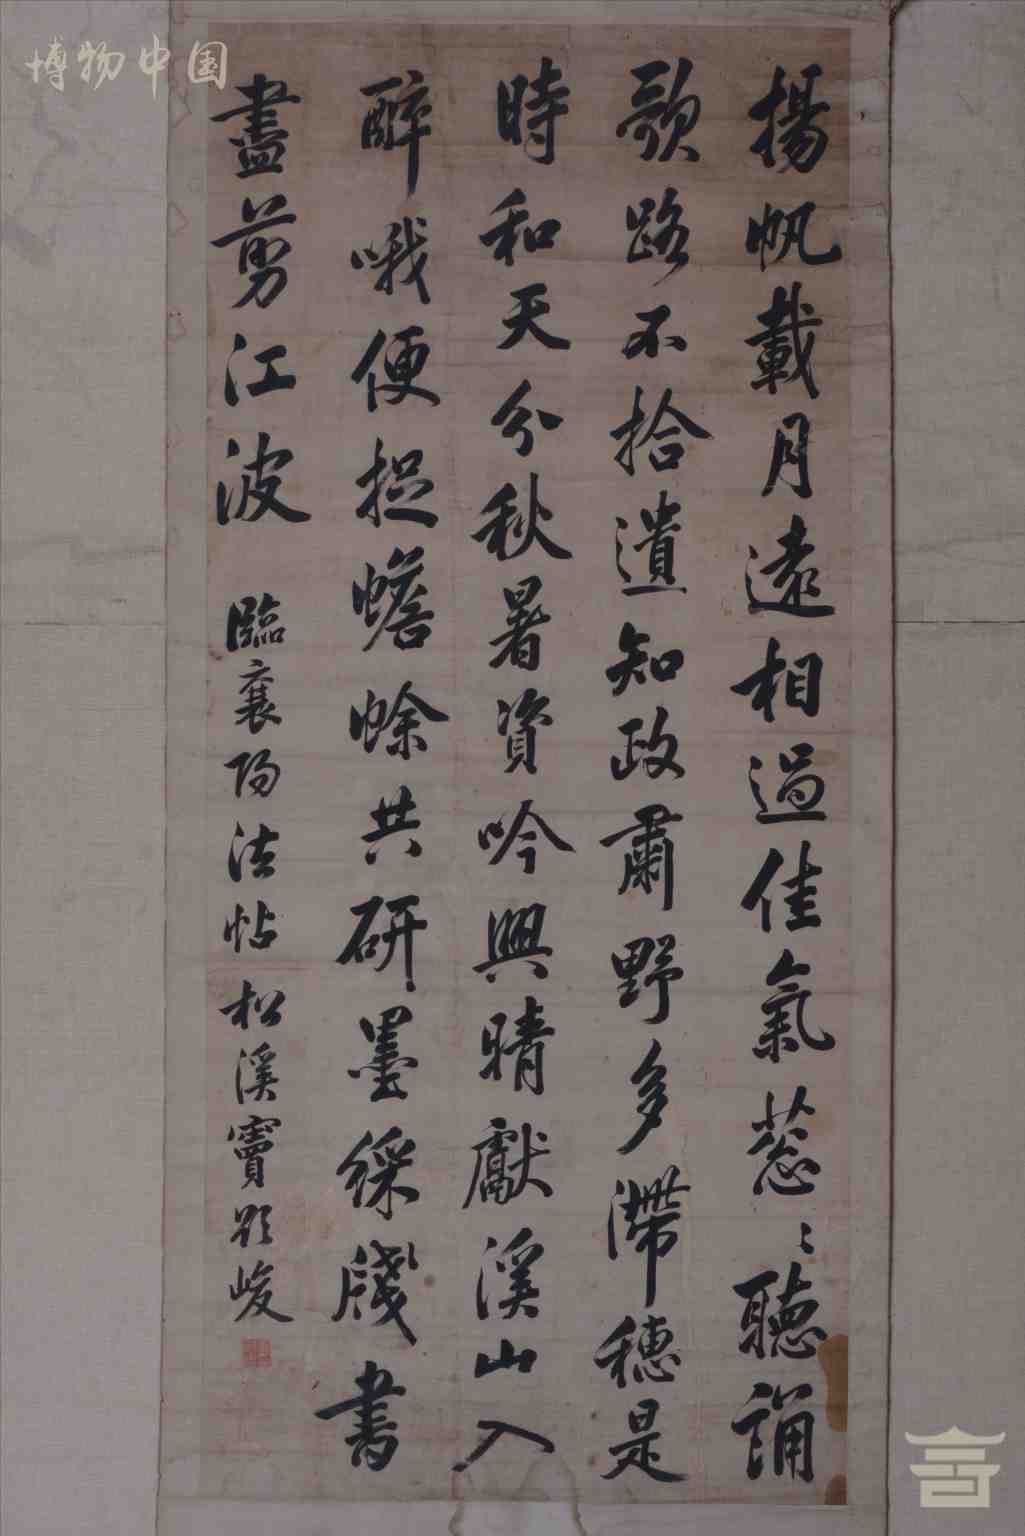 博物中国
揚帆載月遠相過佳氣葱〻聽誦
歌路不拾遺知政肅野多滯穗是
時和天分秋暑資吟興晴獻溪山入
醉哦便捉蟾蜍共研墨綵牋書
盡剪江波 臨襄陽法帖 松溪竇峻